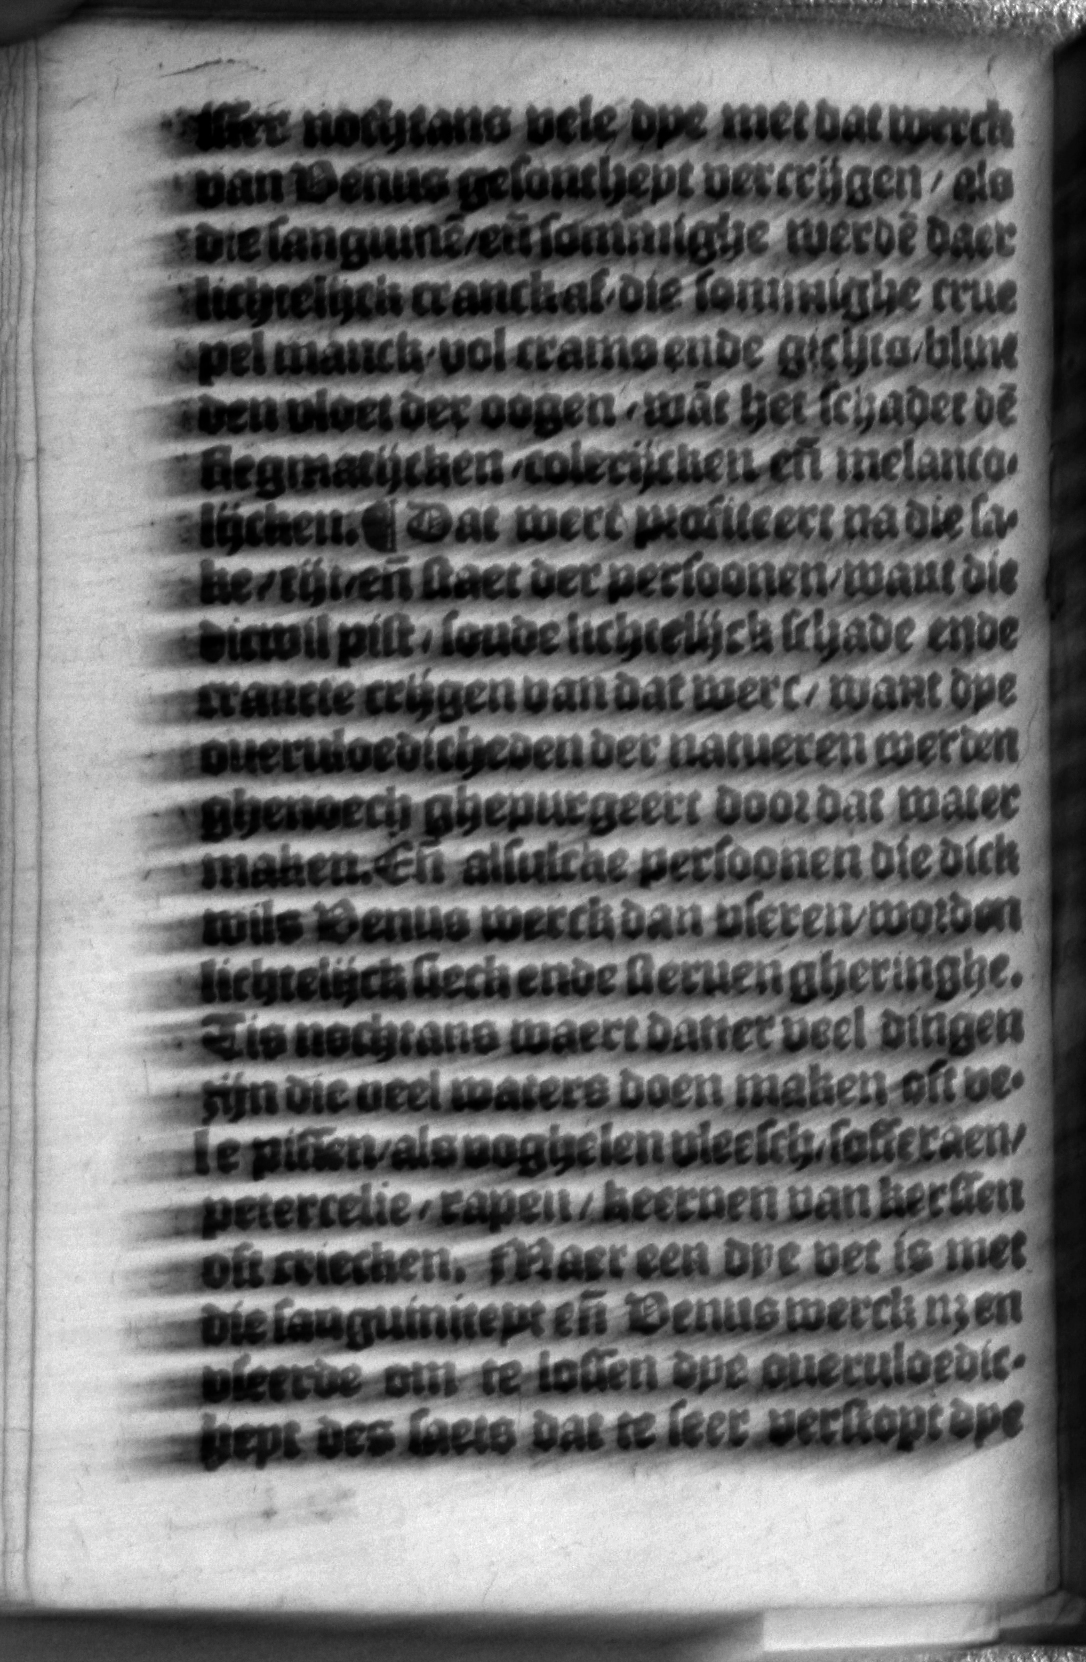 isser nochtans vele dye met dat werck
van Venus gesontheyt vercrijgen / als
die sanguinē / eñ sommighe werdē daer
lichtelijck cranck af / die sommighe crue
pel manck / vol crams ende gichts / blint
den vloet der oogen / wāt het schadet dē
flegmatijcken / colerijcken eñ melanco⸗
lijcken. ¶ Dat werc profiteert na die sa⸗
ke / tijt / eñ staet der persoonen / want die
dicwil pist / soude lichtelijck schade ende
crancte crijgen van dat werc / want dye
oueruloedicheden der natueren werden
ghenoech ghepurgeert door dat water
maken. Eñ alsulcke persoonen die dick
wils Venus werck dan vseren / worden
lichtelijck sieck ende steruen gheringhe.
Tis nochtans waert datter veel dingen
zijn die veel waters doen maken oft ve⸗
le pissen / als voghelen vleesch / sofferaen /
petercelie / rapen / keernen van kerssen
oft criecken. Maer een dye vet is met
die sanguiniteyt eñ Venus werck nz en
vseerde om te lossen dye oueruloedic⸗
heyt des saets dat te seer verstopt dye